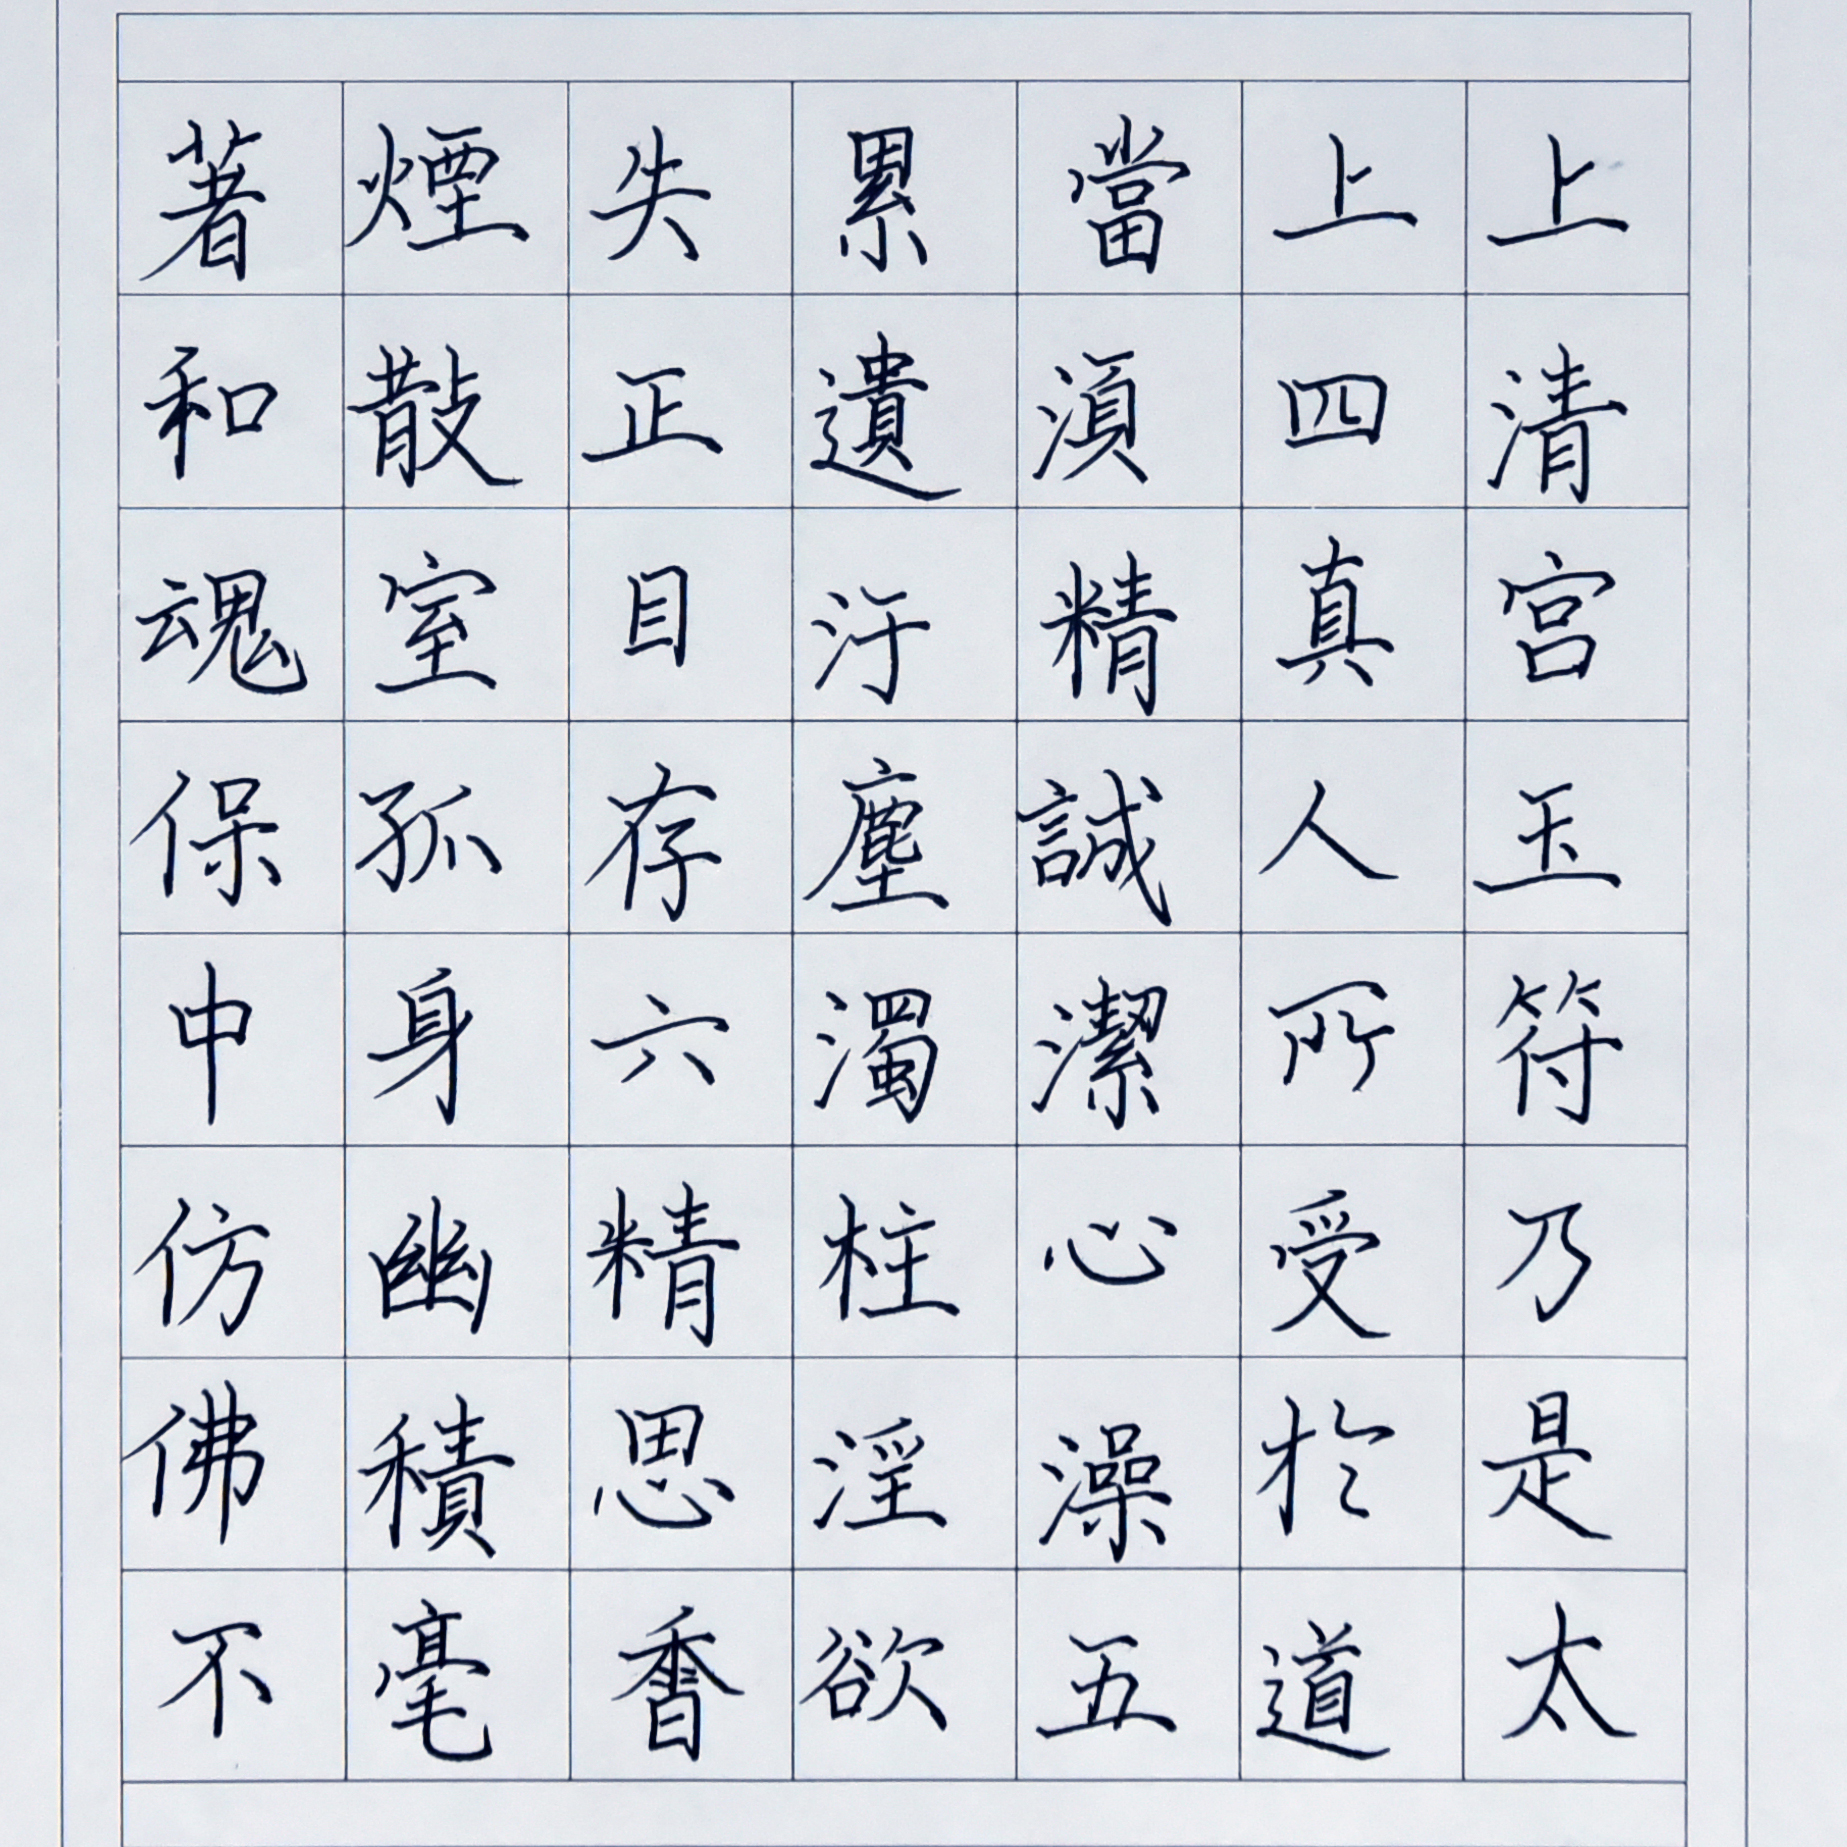 上清宫玉符乃是太
上四真人所受於道
當湏精誠潔心澡五
累遺汙塵濁柱淫欲
失正目存六精思香
煙散室孤身幽積毫
著和魂保中仿佛不